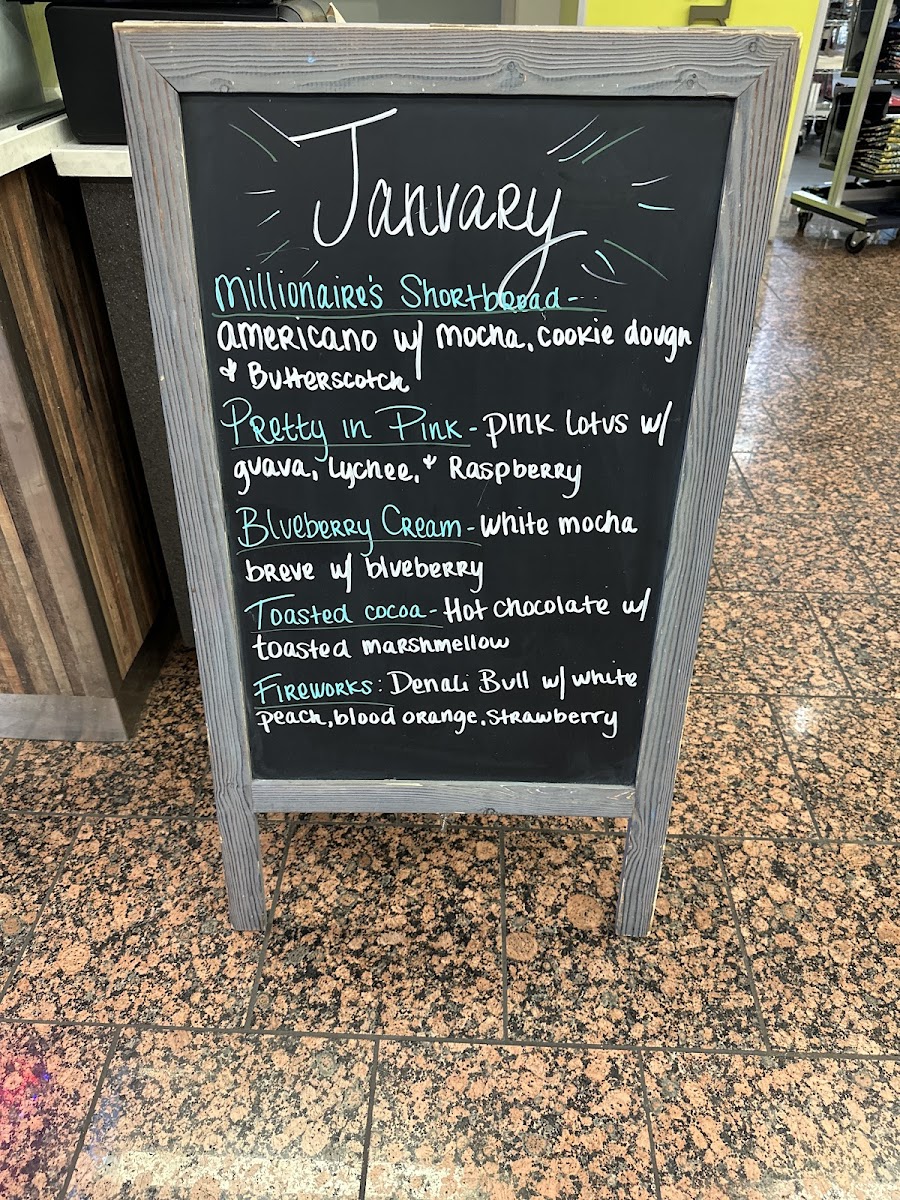 January
Millionaire's Shortbread -
americano w/ mocha, cookie dough
& Butterscotch
Pretty in Pink - pink Lotus w/
guava, lychee, & Raspberry
Blueberry Cream - white mocha
breve w/ blueberry
Toasted cocoa - Hot chocolate w/
toasted marshmellow
Fireworks: Denali Bull w/ white
peach, blood orange, strawberry